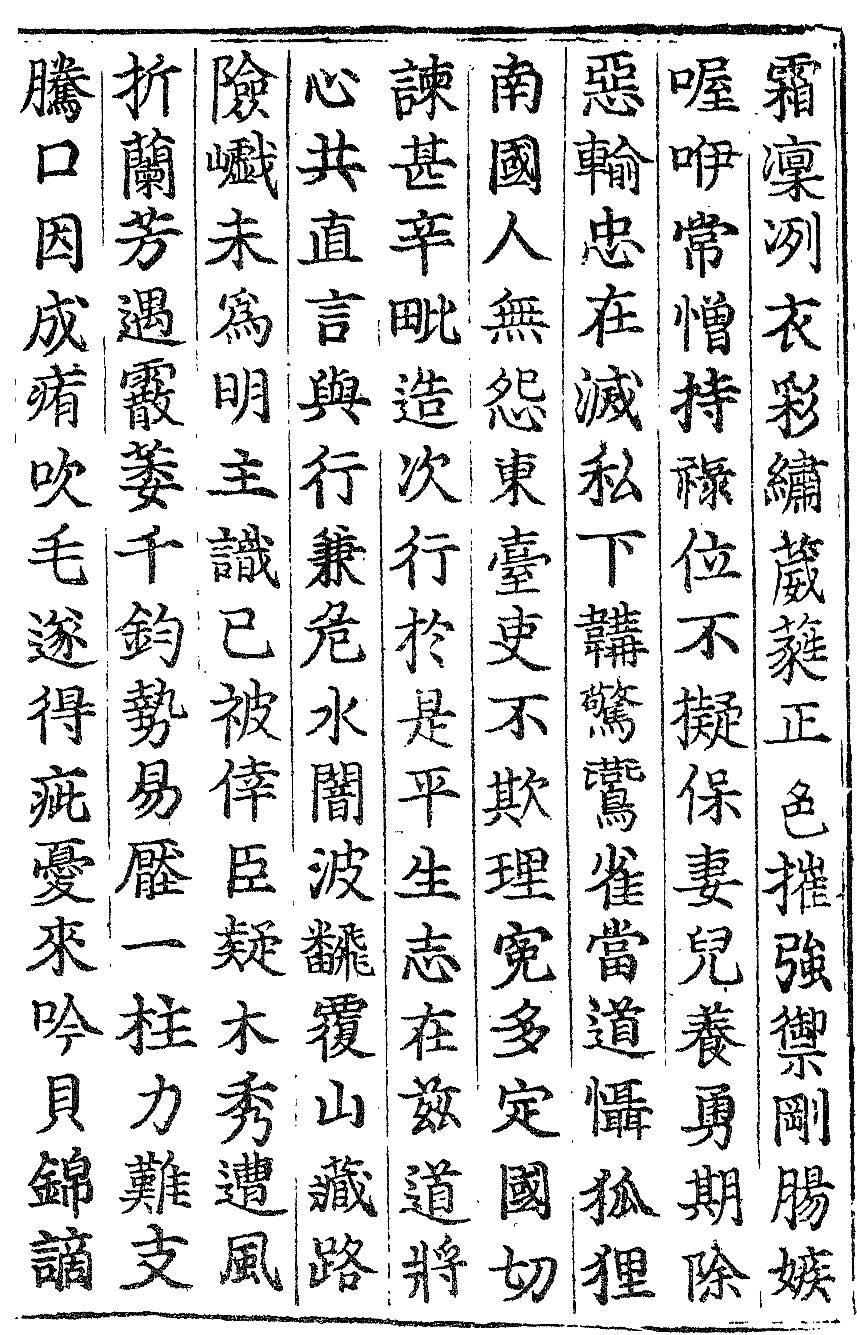 霜凜冽衣彩繡葳蕤正色摧強禦剛腸嫉
喔咿常憎持祿位不擬保妻兒養勇期除
惡輸忠在滅私下韝驚鷰雀當道懾狐狸
南國人無怨東臺吏不欺理冤多定國切
諫甚辛毗造次行於是平生志在茲道將
心共直言與行兼危水闇波飜覆山藏路
險巇未爲明主識已被倖臣疑木秀遭風
折蘭芳遇霰萎千鈞勢易壓一柱力難支
騰口因成痏吹毛遂得疵憂來吟貝錦謫